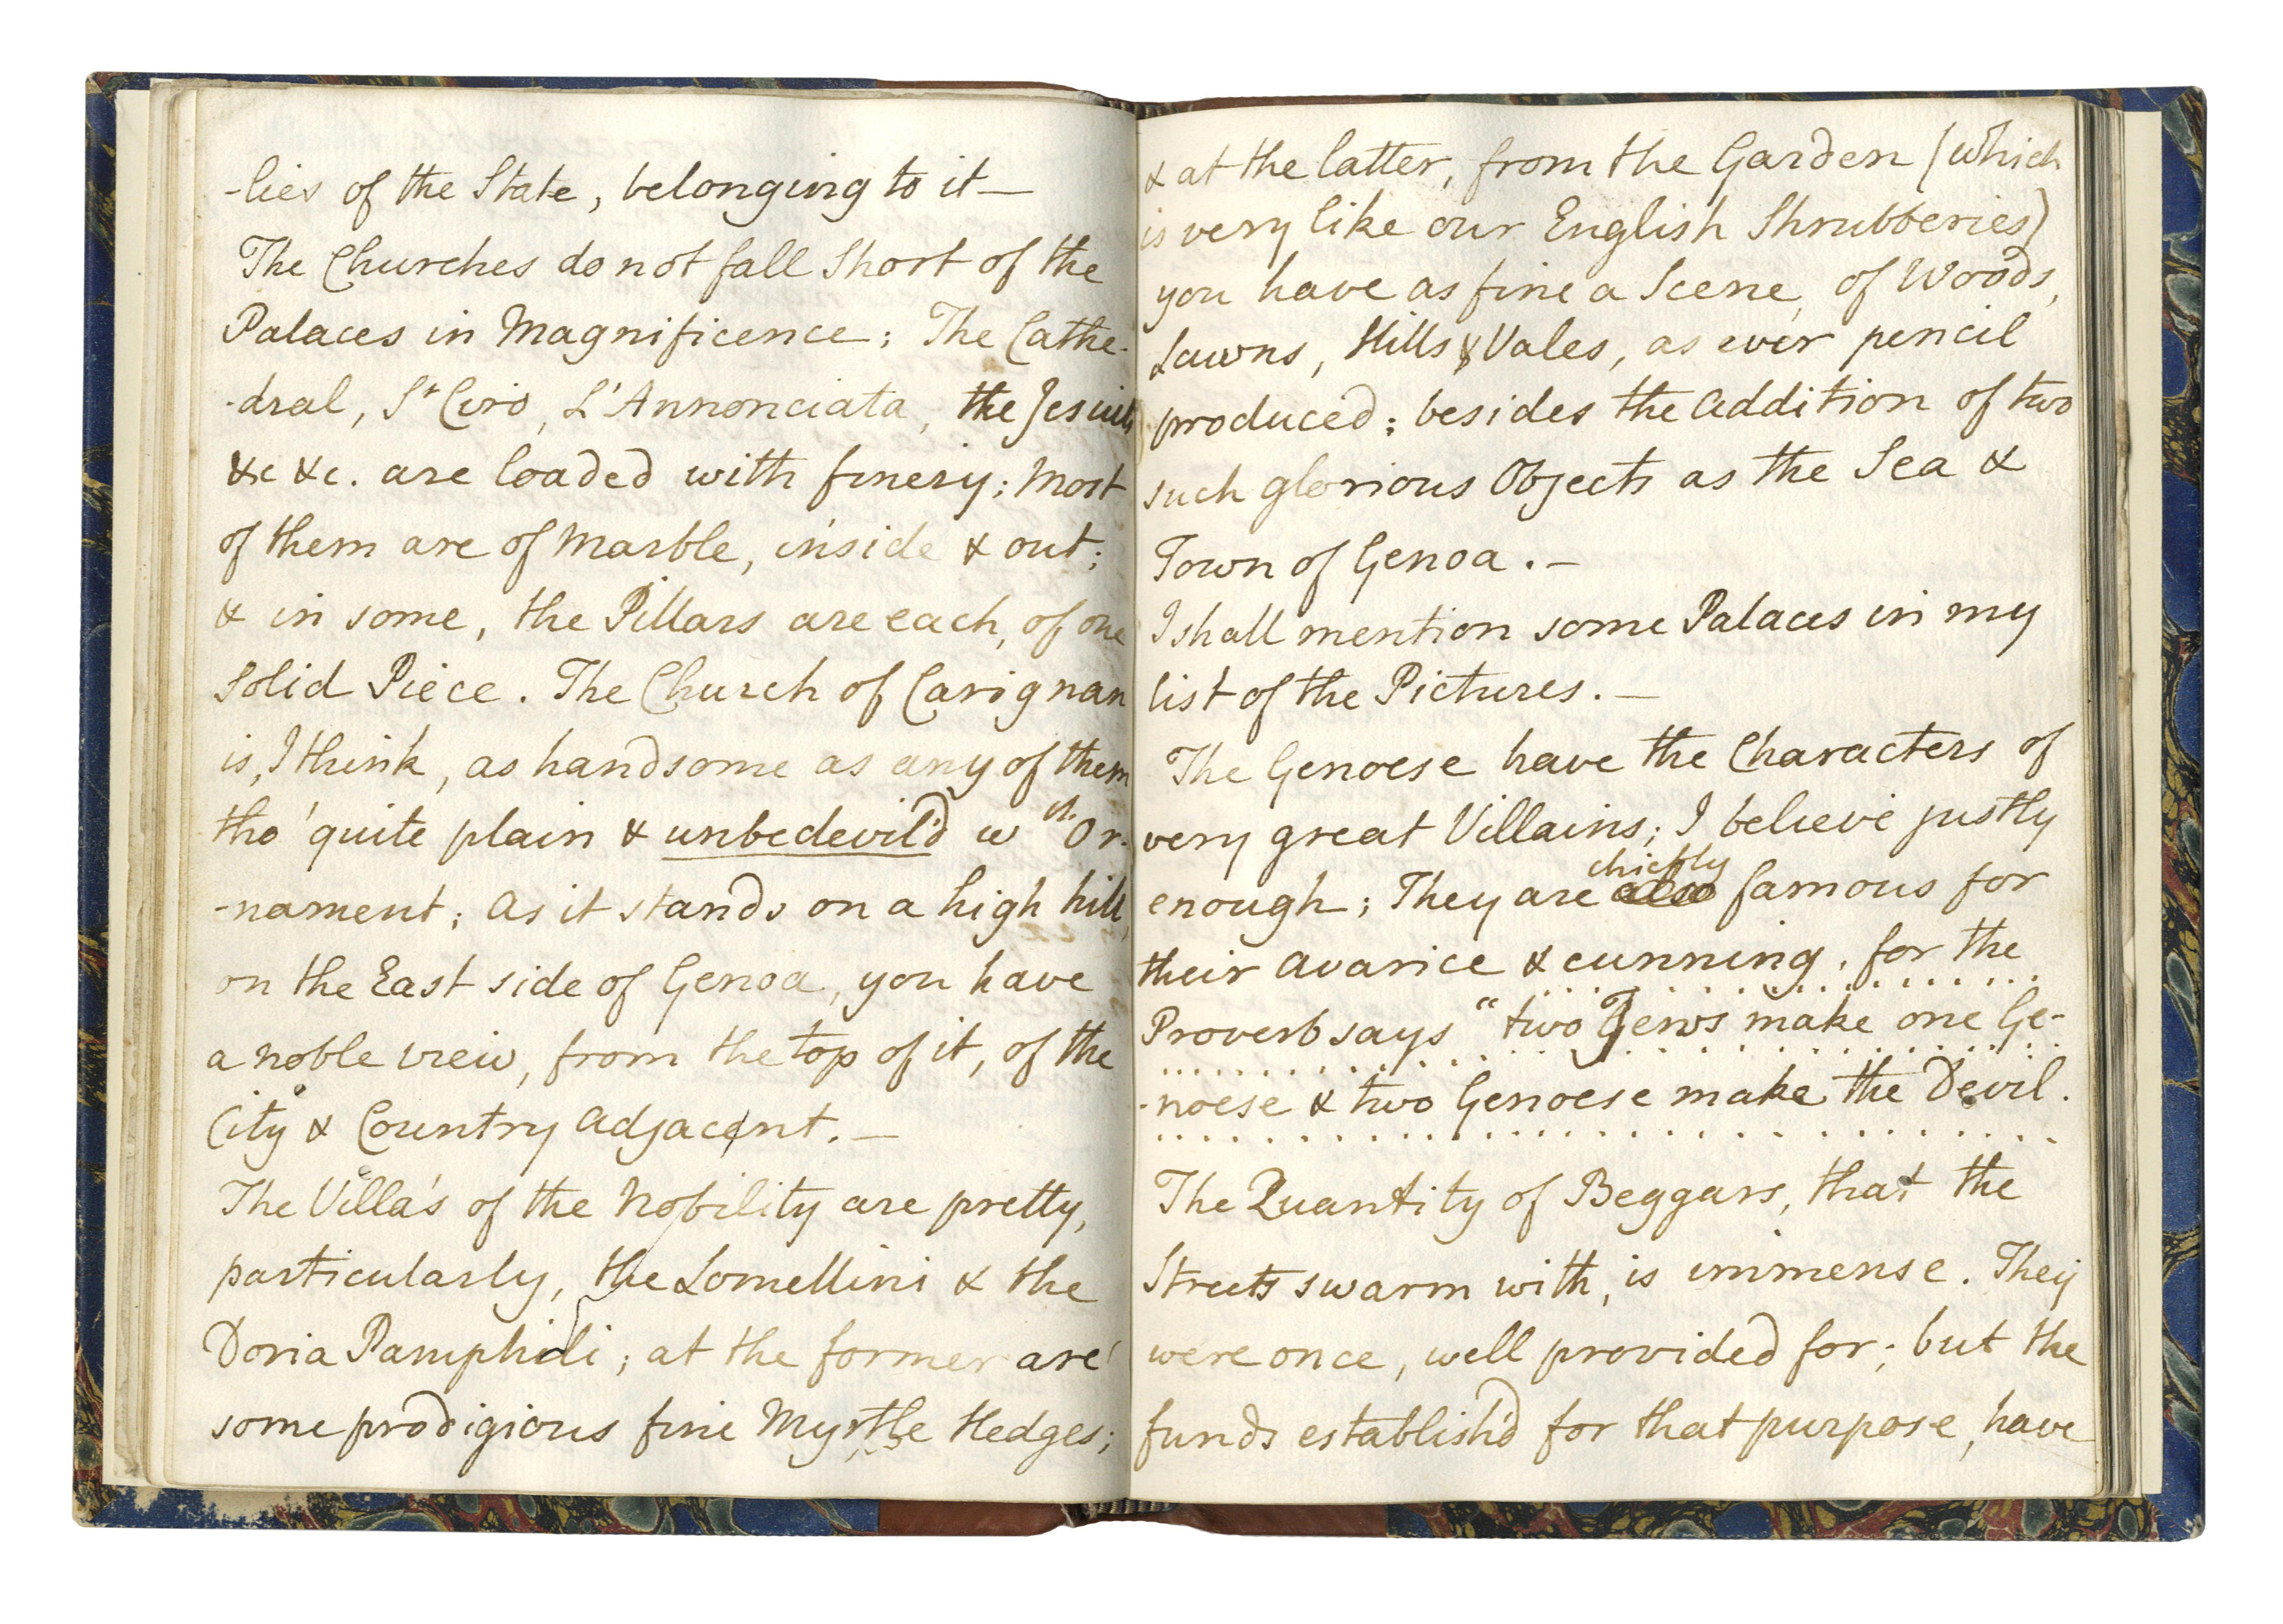 -lies of the State, belonging to it—
The Churches do not fall Short of the
Palaces in Magnificence; The Cathe-
-dral, St Ciro, L'Annonciata, the Jesuits
&c &c. are loaded with finery; Most
of them are of Marble, inside & out;
& in some, the Pillars are each, of one
Solid Piece. The Church of Carignan
is, I think, as handsome as any of them
tho' quite plain & unbedevil'd wth. Or-
-nament; as it stands on a high hill,
on the East side of Genoa, you have
a noble view, from the top of it, of the
City & Country adjacent.—
The Villa's of the Nobility are pretty,
particularly, the Lomellini & the
Doria Pamphili; at the former are
some prodigious fine Myrtle Hedges;
& at the latter, from the Garden (which
is very like our English Shrubberies)
you have as fine a Scene, of Woods,
Lawns, Hills & Vales, as ever pencil
produced; besides the addition of two
such glorious Objects as the Sea &
Town of Genoa.—
I shall mention some Palaces in my
list of the Pictures.—
The Genoese have the Characters of
very great Villains; I believe justly
enough; They are chiefly famous for
their avarice & cunning, for the
Proverb says "two Jews make one Ge-
-noese & two Genoese make the Devil.
The Quantity of Beggars, that the
Streets swarm with, is immense. They
were once, well provided for; but the
funds establish'd for that purpose, have